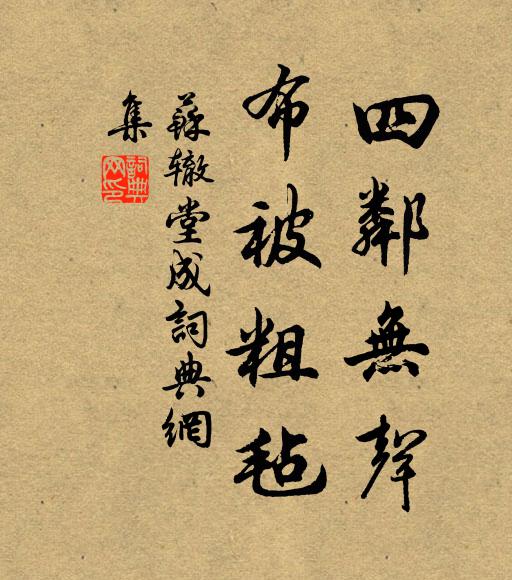 四鄰無聲
布被粗毡
蘇辙堂成詞典網
集
詞典
网印